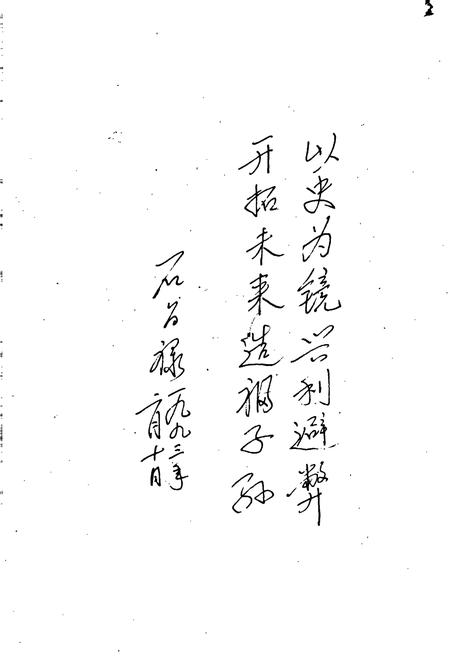 以史为镜兴利避弊
开拓未来造福子孙
石禄一九九三年
二月十日